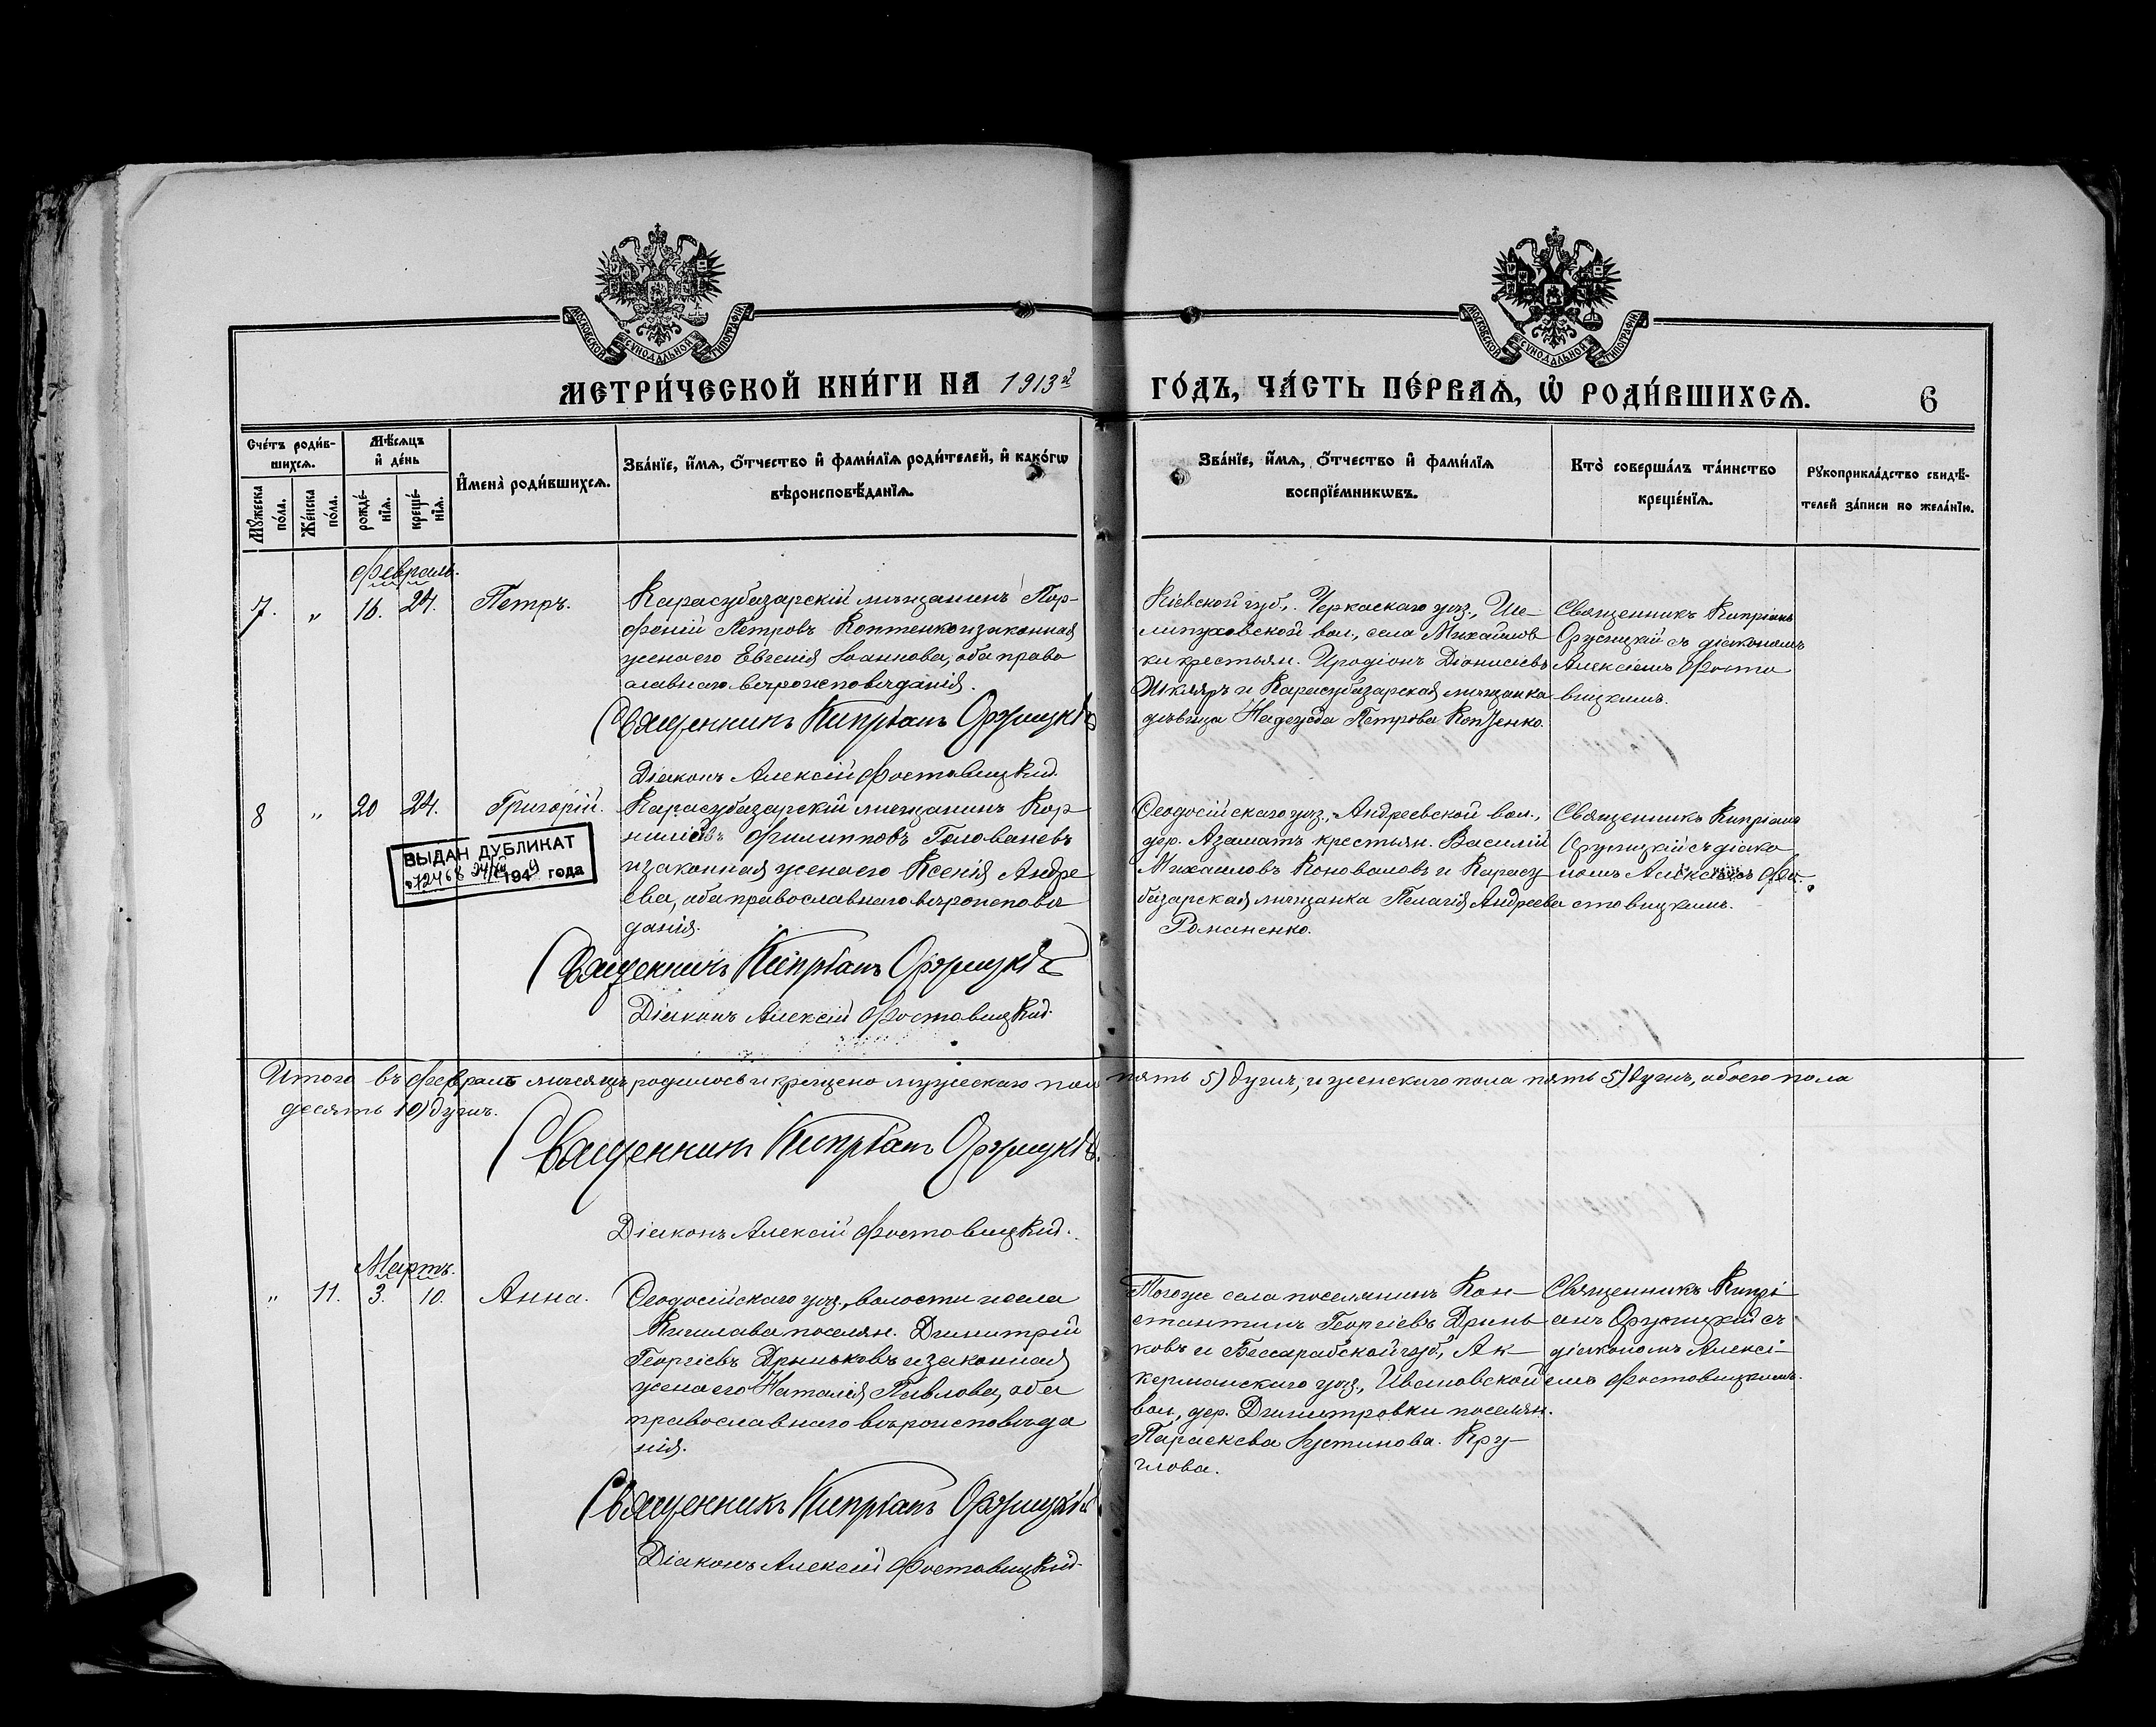 МОСКОВСКОЙ СѴНОДАЛЬНОЙ ТИПОГРАФІИ
МОСКОВСКОЙ СѴНОДАЛЬНОЙ ТИПОГРАФІИ
МЕТРИ́ЧЕСКОЙ КНИ́ГИ НА 1913й ГО́ДЪ, ЧА́СТЬ ПЕ́РВАѦ, Ѽ РОДИ́ВШИХСѦ. 6
Сче́тъ роди́в-
шихсѧ.
Мꙋ́жеска по́ла.
Же́нска по́ла.
Мѣ́сѧцъ
и҆ де́нь
рожде́-
нїѧ.
креще́-
нїѧ.
И҆мена̀ роди́вшихсѧ.
Зва́нїе, и҆́мѧ, ѻ҆́тчество и҆ фами́лїѧ роди́телей, и҆ како́гѡ
вѣроисповѣ́данїѧ.
Зва́нїе, и҆́мѧ, ѻ҆́тчество и҆ фами́лїѧ
воспрїе́мникѡвъ.
Кто̀ соверша́лъ та́инство
креще́нїѧ.
Рꙋкоприкла́дство свидѣ́-
телей за́писи по жела́нїю.
Февраль.
7. „ 16. 24. Петръ.
Карасубазарскій мѣщанинъ Пор-
феній Петровъ Коптенко и законная
жена его Евгенія Іоаннова, оба право
славнаго вѣроисповѣданія.
Священникъ Кипріанъ Оружицкій
Діаконъ Алексій Фоставицкій.
Кіевской губ., Черкаскаго уѣз., Ше-
липуховской вол., села Михайлов
ки крестьян. Иродіонъ Діонисіевъ
Шкляръ и Карасубазарская мѣщанка
дѣвица Надежда Петрова Коптенко.
Священникъ Кипріанъ
Оружицкій съ діакономъ
Алексіемъ Фоста
вицкимъ.
8 „ 20 24. Григорій.
ВЫДАН ДУБЛИКАТ
1949 года
Карасубазарскій мѣщанинъ Кор
нилій Филипповъ Голованевъ
и законная жена его Ксенія Андре
ева, оба православнаго вѣроисповѣ
данія.
Священникъ Кипріанъ Оружицкій
Діаконъ Алексій Фоставицкій.
Ѳеодосійскаго уѣз., Андреевской вол.,
дер. Азаматъ крестьян. Василій
Михаиловъ Коноваловъ и Карасу-
базарская мѣщанка Пелагія Андреева
Романенко.
Священникъ Кипріанъ
Оружицкій съ діако
номъ Алексіемъ Фо-
ставицкимъ.
Итого въ февралѣ мѣсяцѣ родилось и крещено мужескаго пола пять 5) душъ, и женскаго пола пять 5) душъ, обоего пола
десять 10) душъ.
Священникъ Кипріанъ Оружицкій.
Діаконъ Алексій Фоставицкій.
Мартъ.
„ 11. 3. 10. Анна.
Ѳеодосійскаго уѣз., волости и села
Кишлава поселян. Димитрій
Георгіевъ Дрыньковъ и законная
жена его Наталія Павлова, оба
православнаго вѣроисповѣда
нія.
Священникъ Кипріанъ Оружицкій
Діаконъ Алексій Фоставицкій.
Тогоже села поселянинъ Кон-
стантинъ Георгіевъ Дрынь
ковъ и Бессарабской губ., Ак-
керманскаго уѣз., Ивановской
вол., дер. Димитровки поселян.
Параскева Іустинова. Кру-
глова.
Священникъ Кипрі
анъ Оружицкій съ
діакономъ Алексі-
емъ Фоставицкимъ.